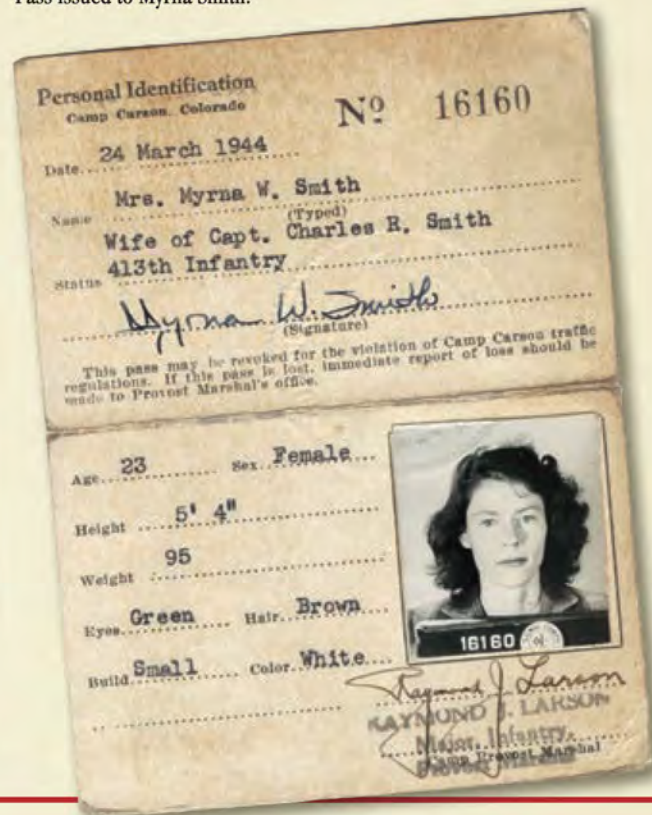 Pass issued to Myrna Smith.
Personal Identification
Camp Carson, Colorado
Nº 16160
Date 24 March 1944
Name Mrs. Myrna W. Smith
(Typed)
Wife of Capt. Charles R. Smith
Status 413th Infantry
Myrna W. Smith
(Signature)
This pass may be revoked for the violation of Camp Carson traffic
regulations. If this pass is lost, immediate report of loss should be
made to Provost Marshal's office.
Age 23 Sex Female
Height 5' 4"
Weight 95
Eyes Green Hair Brown
Build Small Color White
16160
Raymond J. Larson
RAYMOND J. LARSON
Major, Infantry
Camp Provost Marshal
Provost Marshal